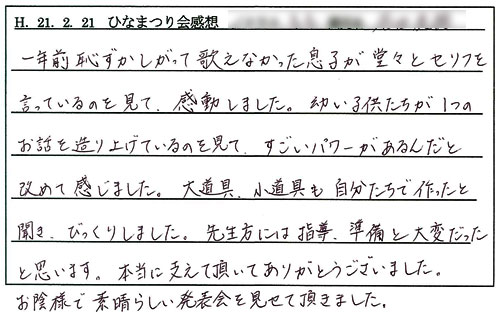 H. 21. 2. 21 ひなまつり会感想
一年前恥ずかしがって歌えなかった息子が堂々とセリフを
言っているのを見て、感動しました。幼い子供たちが1つの
お話を造り上げているのを見て、すごいパワーがあるんだと
改めて感じました。大道具、小道具も自分たちで作ったと
聞き、びっくりしました。先生方には指導、準備と大変だった
と思います。本当に支えて頂いてありがとうございました。
お陰様で素晴らしい発表会を見せて頂きました。